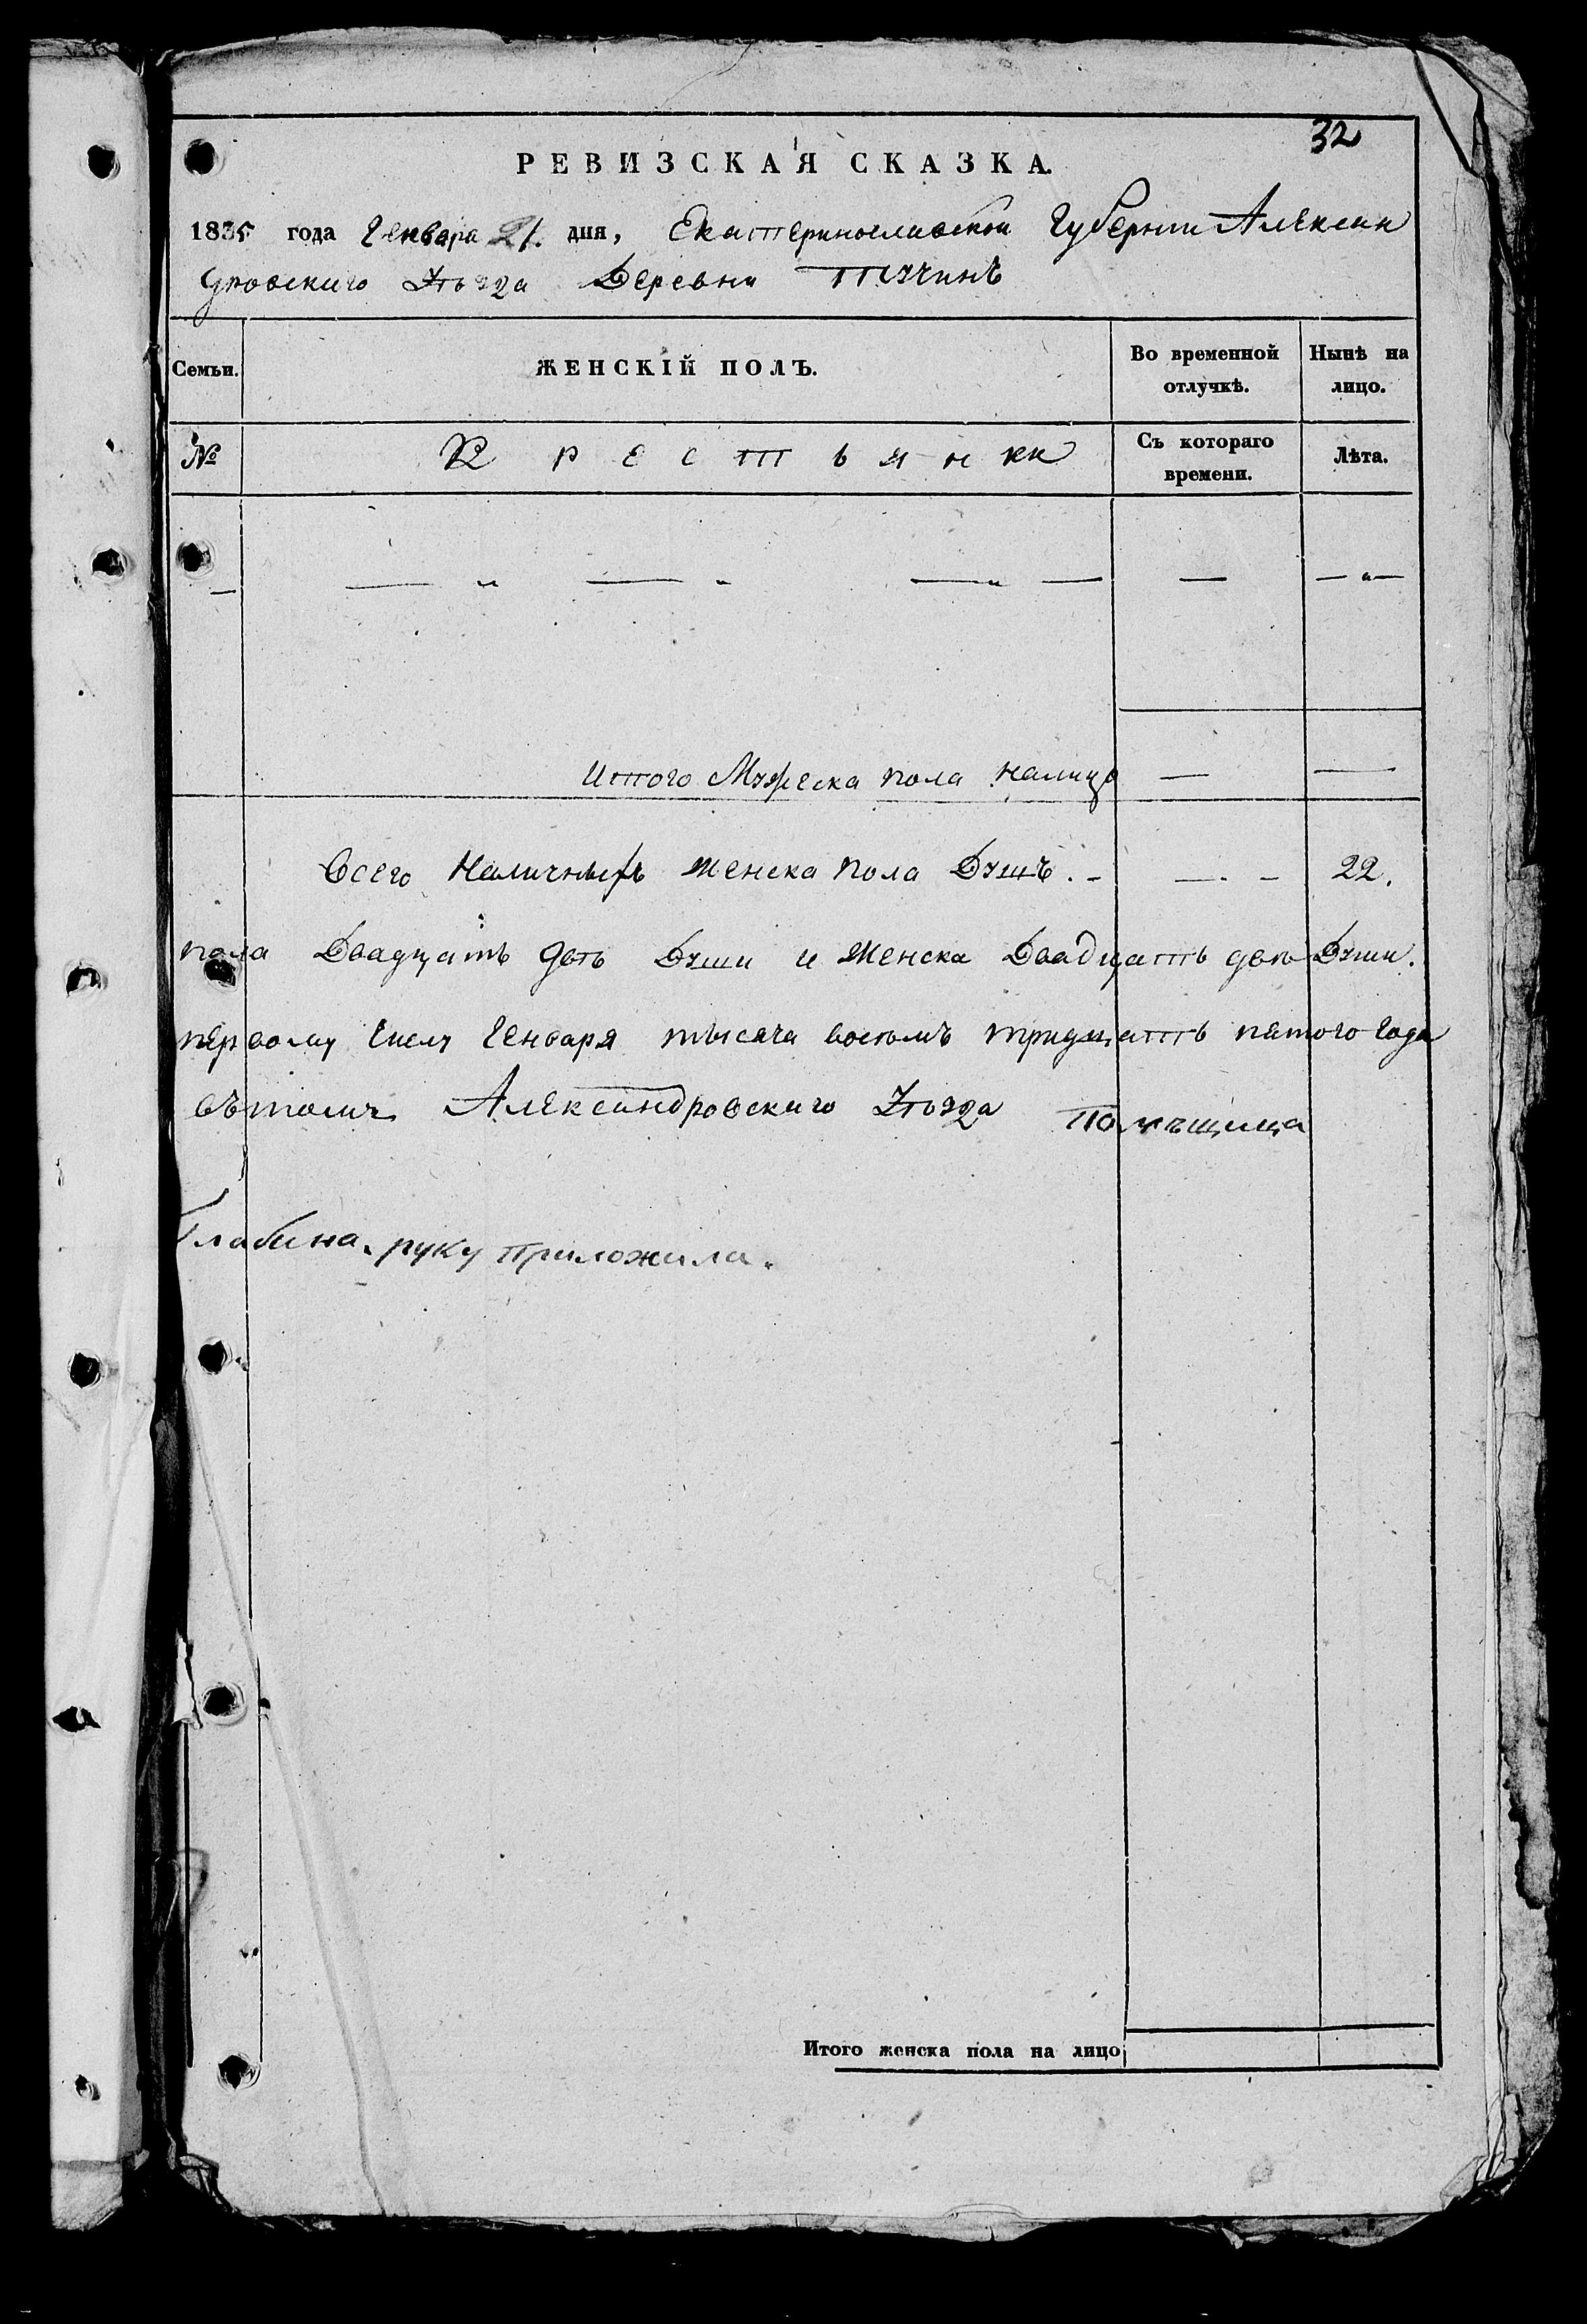 32
РЕВИЗСКАЯ СКАЗКА.
1835 года Генваря 21. дня, Екатеринославской Губернии Алексан
дровского Уѣзда Деревни
Семьи. ЖЕНСКІЙ ПОЛЪ. Во временной отлучкѣ. Нынѣ на лицо.
№ Крестьянки Съ котораго времени. Лѣта.
Итого Мужеска пола налицо — —
Всего Наличныхъ женска пола Душъ. - — . - 22.
пола Двадцать двѣ Души и Женска Двадцать двѣ Души.
первому Числу Генваря тысяча восемъ тридцать пятого Года
Александровского Уѣзда Помѣщица
руку приложила.
Итого женска пола на лицо